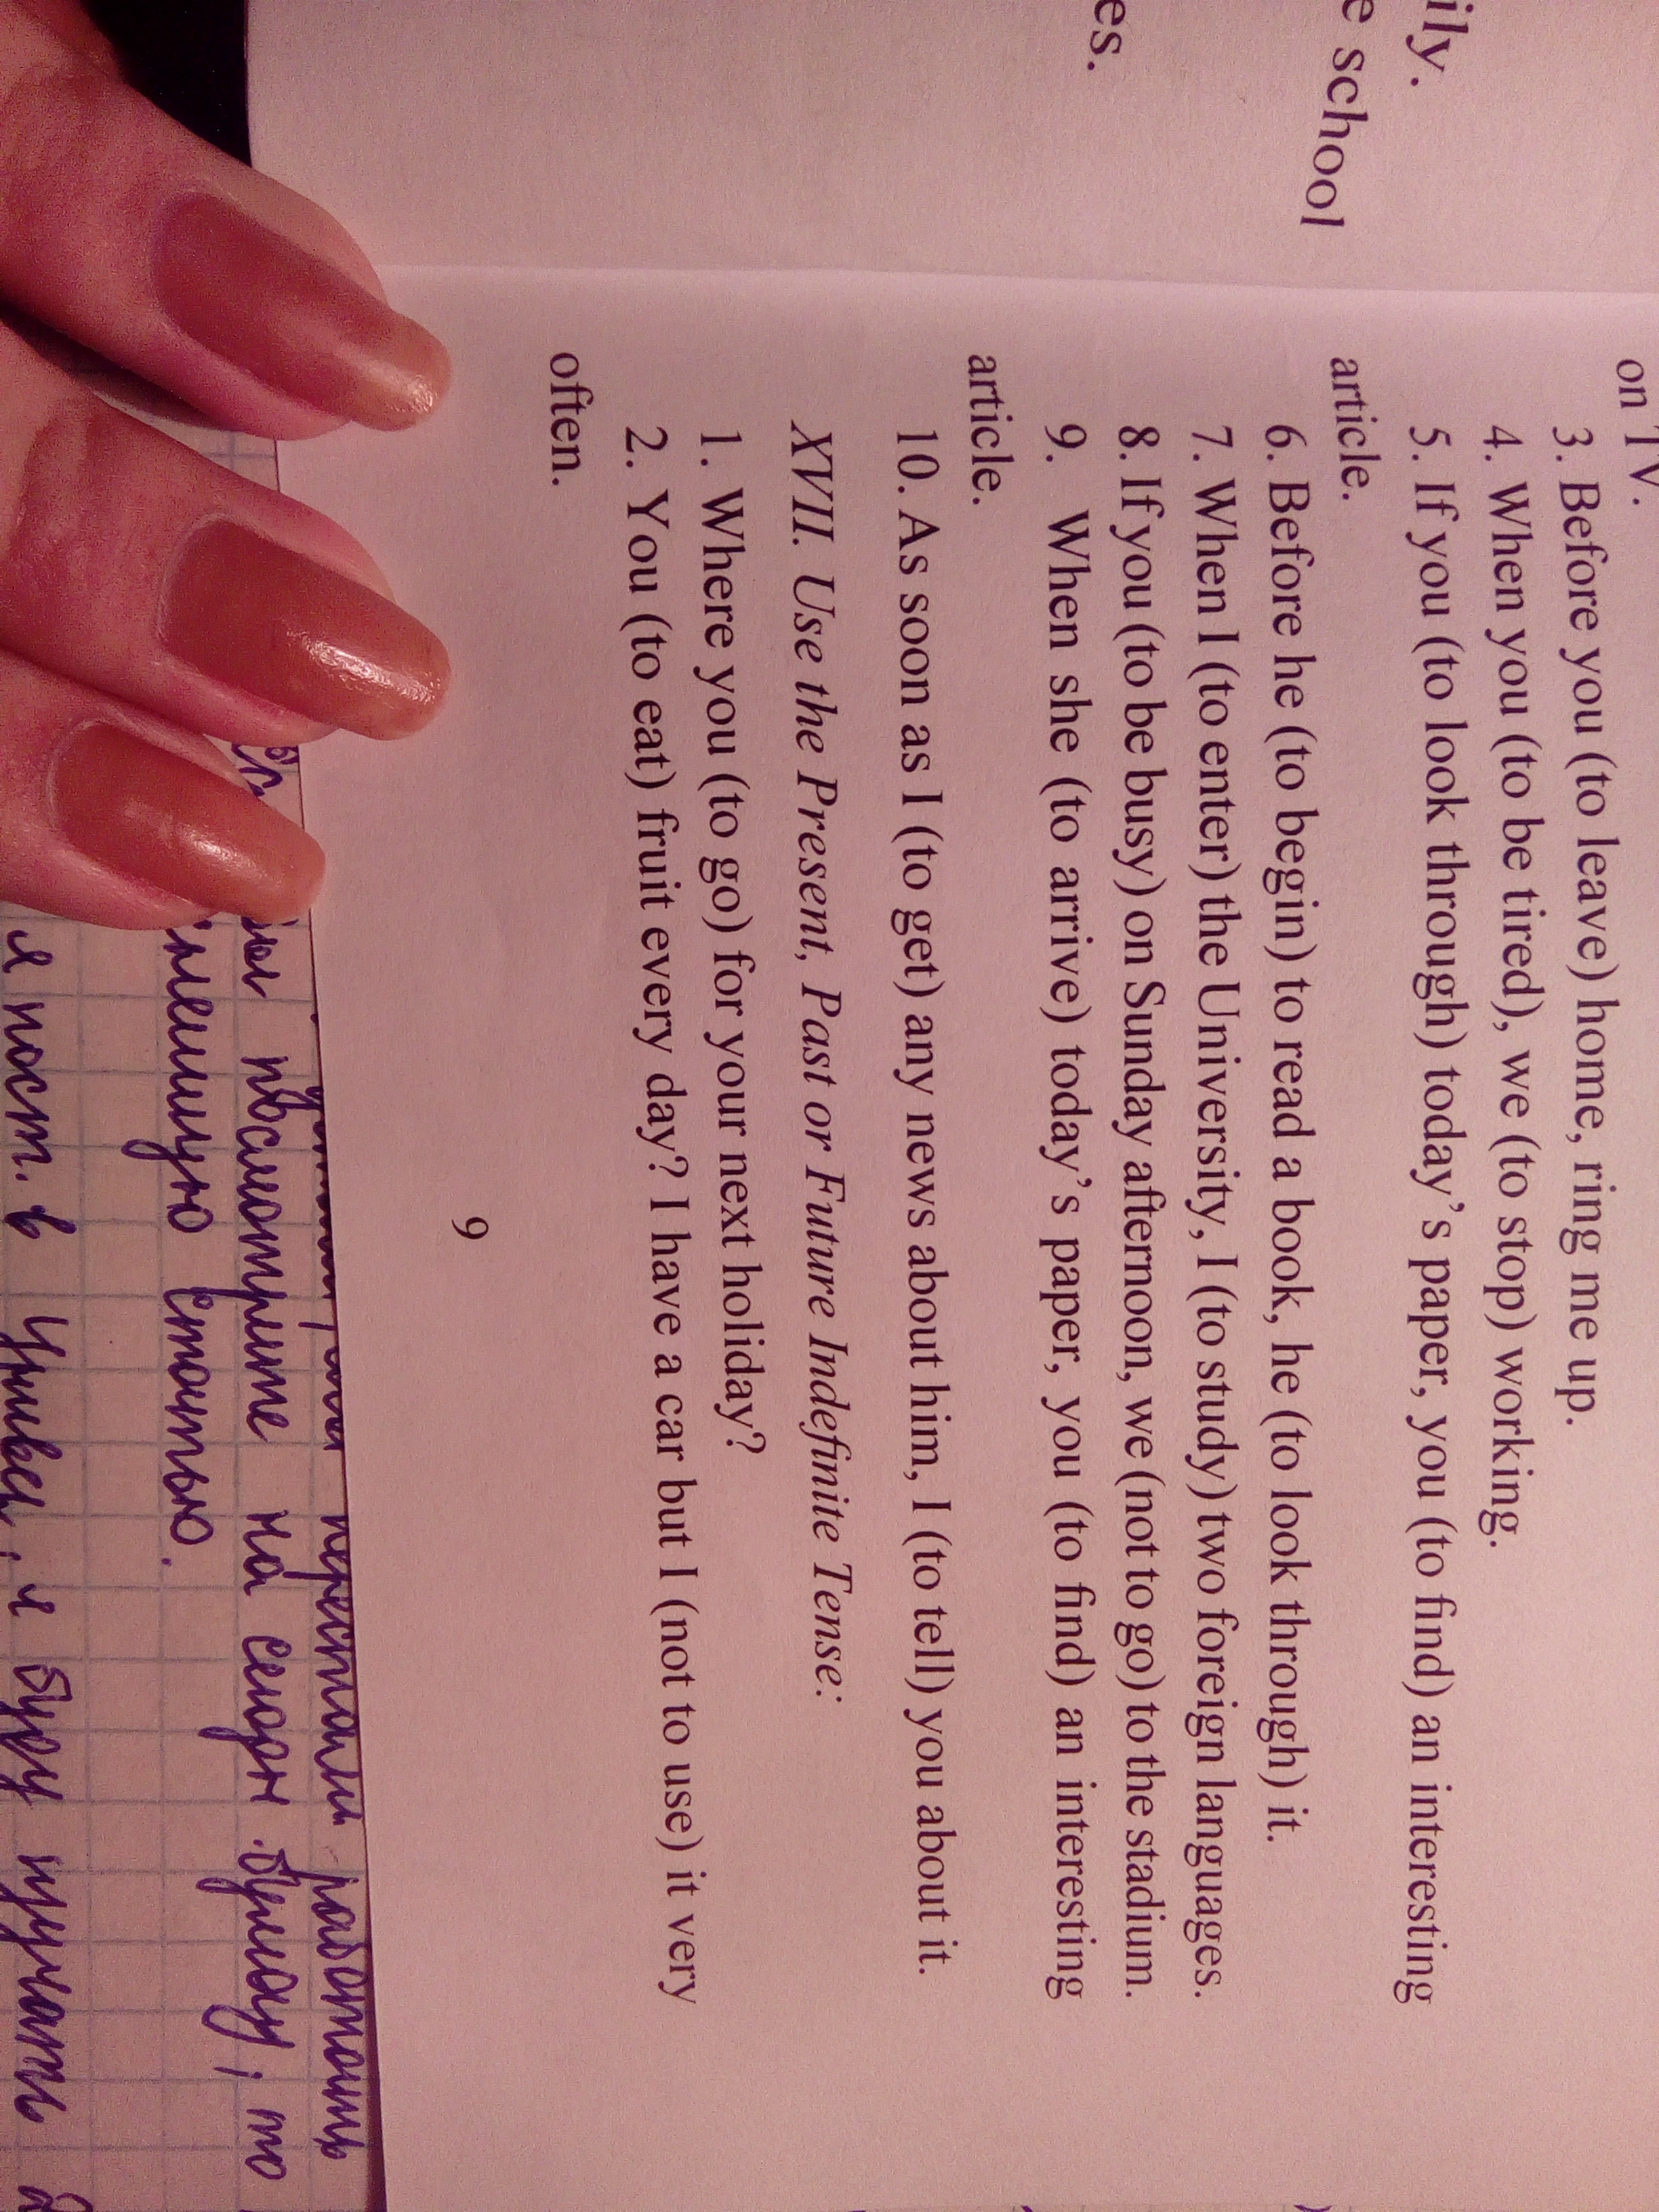 ily.
e school
es.
on TV.
3. Before you (to leave) home, ring me up.
4. When you (to be tired), we (to stop) working.
5. If you (to look through) today's paper, you (to find) an interesting
article.
6. Before he (to begin) to read a book, he (to look through) it.
7. When I (to enter) the University, I (to study) two foreign languages.
8. If you (to be busy) on Sunday afternoon, we (not to go) to the stadium.
9. When she (to arrive) today's paper, you (to find) an interesting
article.
10. As soon as I (to get) any news about him, I (to tell) you about it.
XVII. Use the Present, Past or Future Indefinite Tense:
1. Where you (to go) for your next holiday?
2. You (to eat) fruit every day? I have a car but I (not to use) it very
often.
9
работать
посмотрите на сегодн. бумагу, то
статью.
я пост. в Универ, я буду изучать